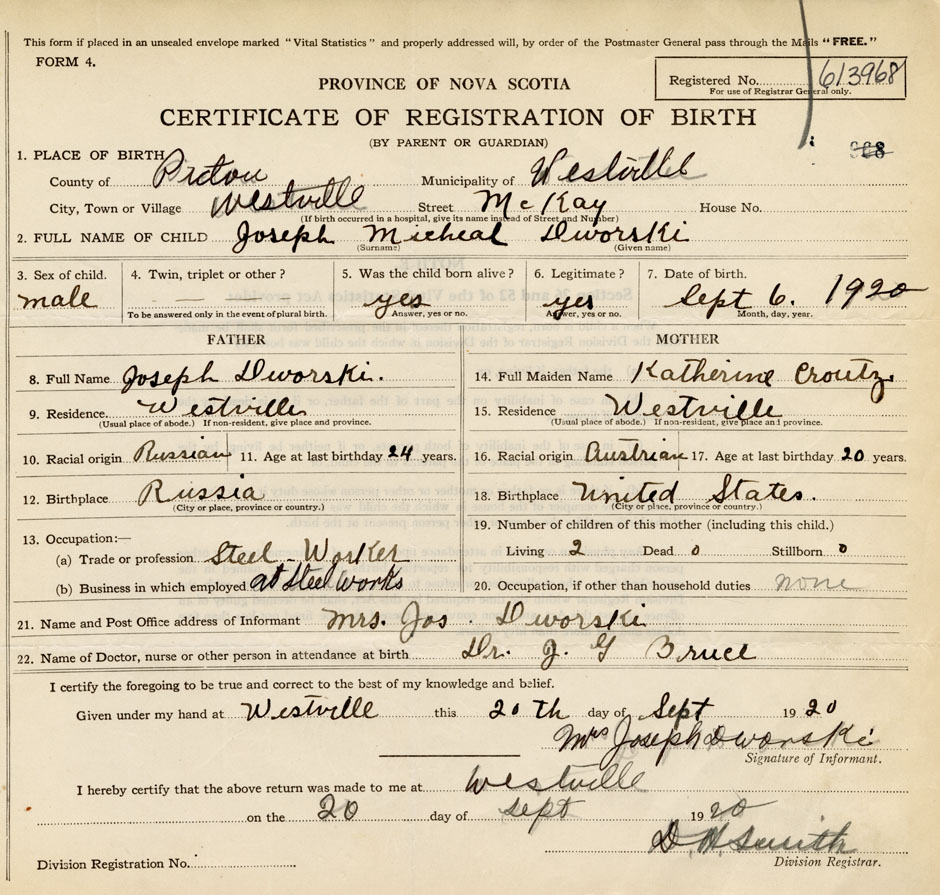 This form if placed in an unsealed envelope marked "Vital Statistics" and properly addressed will, by order of the Postmaster General pass through the Mails "FREE."
FORM 4.
Registered No. 613968
For use of Registrar General only.
PROVINCE OF NOVA SCOTIA
CERTIFICATE OF REGISTRATION OF BIRTH
(BY PARENT OR GUARDIAN)
1. PLACE OF BIRTH
County of Pictou Municipality of Westville
City, Town or Village Westville Street McKay House No.
(If birth occurred in a hospital, give its name instead of Street and Number)
2. FULL NAME OF CHILD Joseph Micheal Dworski
(Surname) (Given name)
3. Sex of child. 4. Twin, triplet or other? 5. Was the child born alive? 6. Legitimate? 7. Date of birth.
male — — — yes yes Sept 6. 1920
To be answered only in the event of plural birth. Answer, yes or no. Answer, yes or no. Month, day, year.
FATHER MOTHER
8. Full Name Joseph Dworski. 14. Full Maiden Name Katherine Croutz.
9. Residence. Westville 15. Residence Westville
(Usual place of abode.) If non-resident, give place and province. (Usual place of abode.) If non-resident, give place and province.
10. Racial origin Russian 11. Age at last birthday 24 years. 16. Racial origin Austrian 17. Age at last birthday 20 years.
12. Birthplace Russia 18. Birthplace United States.
(City or place, province or country.) (City or place, province or country.)
13. Occupation:— 19. Number of children of this mother (including this child.)
(a) Trade or profession Steel Worker Living 2 Dead 0 Stillborn 0
(b) Business in which employed at Steel Works 20. Occupation, if other than household duties none
21. Name and Post Office address of Informant Mrs. Jos. Dworski
22. Name of Doctor, nurse or other person in attendance at birth Dr. J. G Bruce
I certify the foregoing to be true and correct to the best of my knowledge and belief.
Given under my hand at Westville this 20th day of Sept 1920
Mrs Joseph Dworski
Signature of Informant.
I hereby certify that the above return was made to me at Westville
on the 20 day of Sept 1920
D. H. Smith
Division Registration No. Division Registrar.